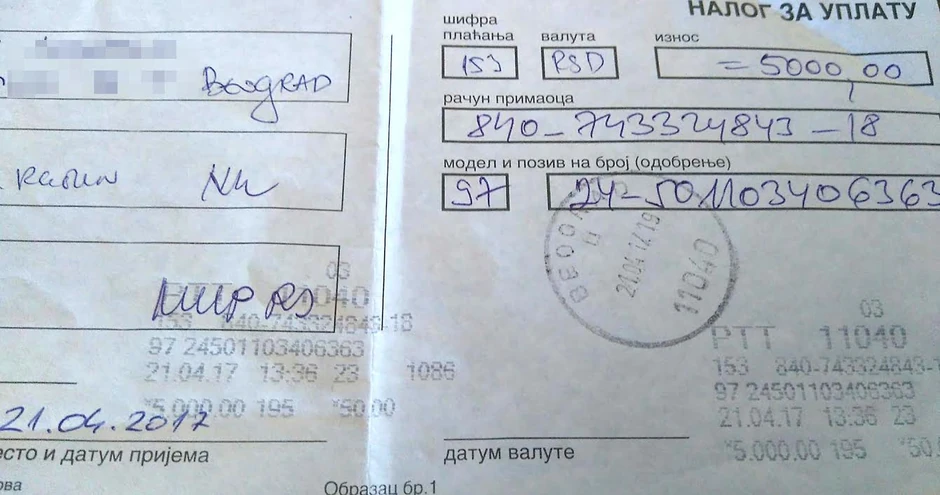 НАЛОГ ЗА УПЛАТУ
Beograd
MUP RS
03
PTT 11040
153 840-743324843-18
97 24501103406363
21.04.17 13:36 23 1086
*5.000.00 195 *50.00
21.04.2017
есто и датум пријема
ова
Образац бр.1
шифра
плаћања валута износ
153 RSD =5000,00
рачун примаоца
840-743324843-18
модел и позив на број (одобрење)
97 24-501103406363
BEOGRAD
21.04.17.19
11040
03
PTT 11040
153 840-743324843-1
97 24501103406363
21.04.17 13:36 23
*5.000.00 195 *50.
датум валуте